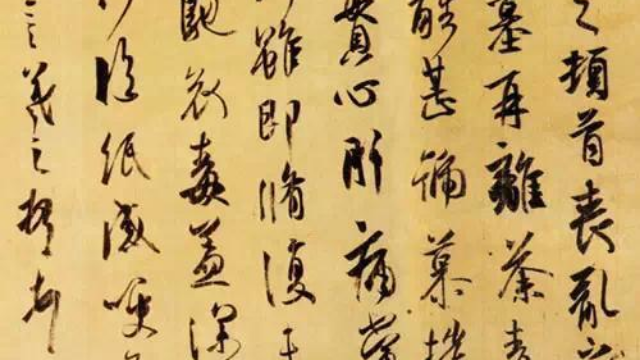 之頓首喪亂之
墓再離荼毒
酷甚號慕摧
貫心肝痛當
雖即脩復未
馳哀毒益深
臨紙感哽不
言羲之頓首